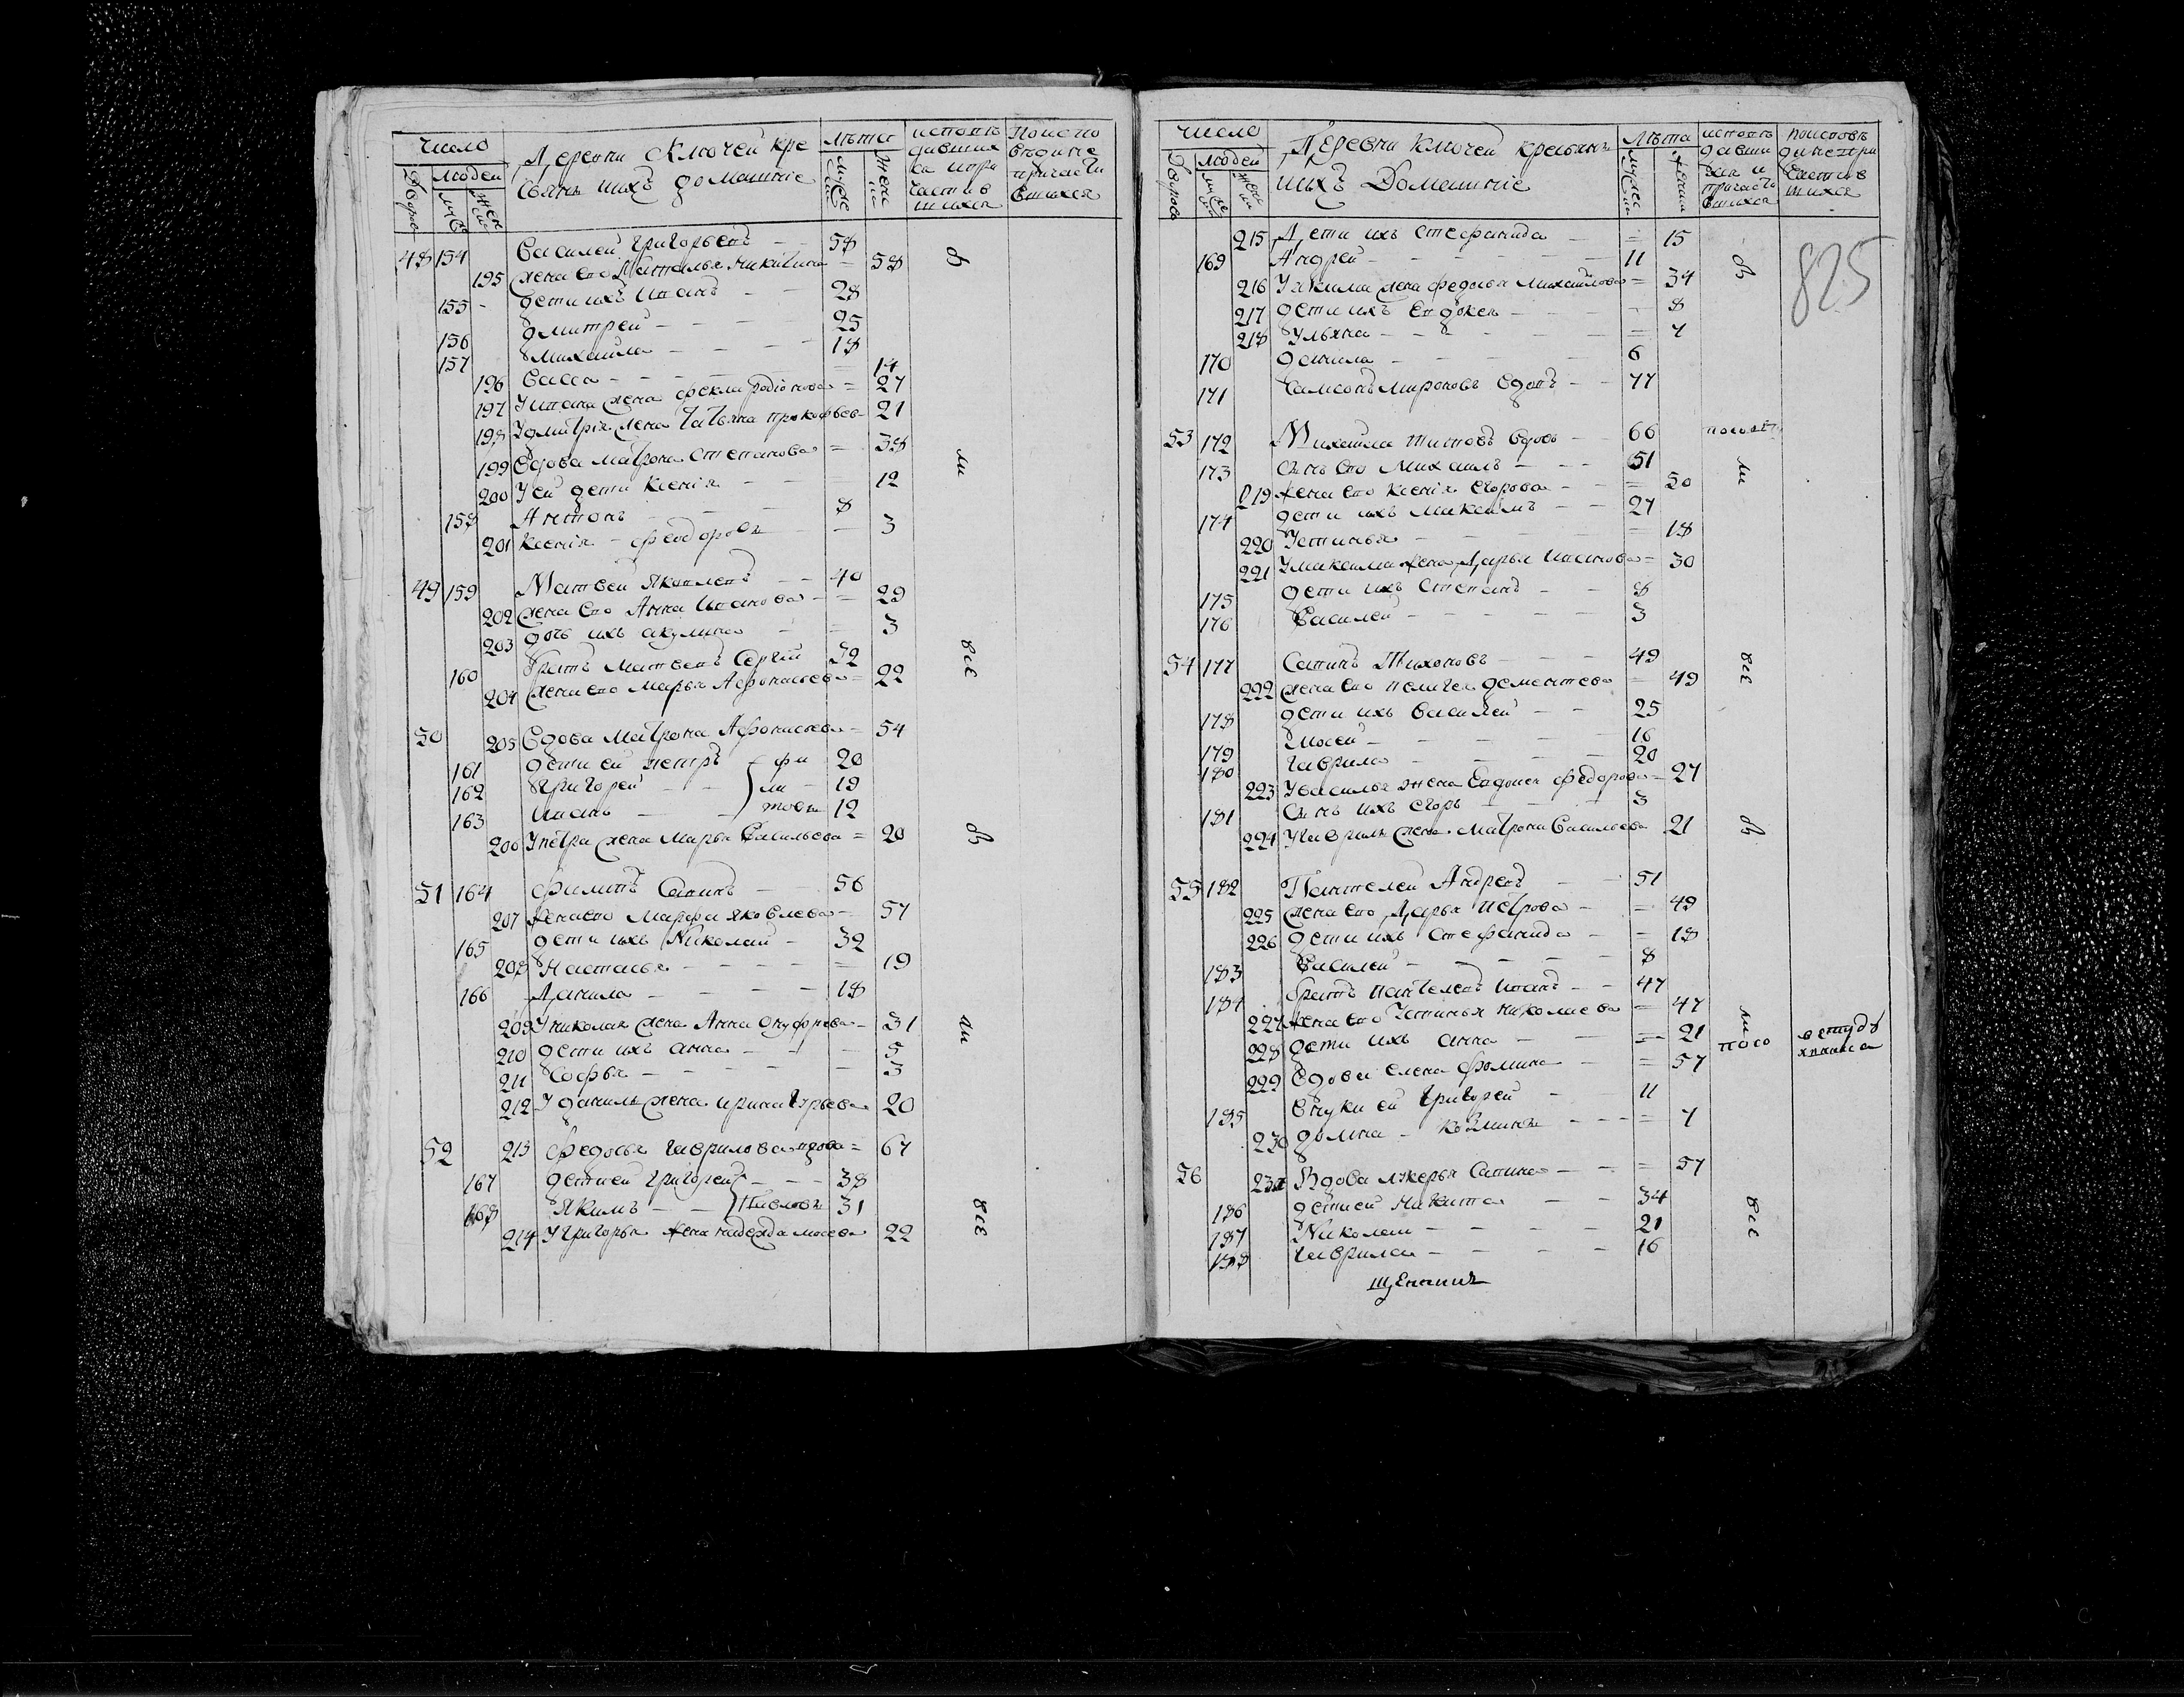 Число
Деревни Ключей кре
стьянъ ихъ домашние
Лѣта
исповѣ
давших
ся и при
частив
шихся
Дворовъ
людей
муж
жен
муж
женс
48 154 Василей Григорьевъ - - 58
195 жена его Наталья Никитина = 58
155 - дети ихъ Иванъ - - 28
156 Дмитрей - - - - 25
157 Михайла - - - - 18
196 Васса - - - - 14
197 У Ивана жена Фекла Родионова = 27
198 У Дмитрия жена Татьяна Прокофьева 21
199 Вдова Матрона Степанова = 38
200 У ей дети Ксения - - 12
158 Антонъ - - - 8
201 Ксения - Феодоровы - 3
49 159 Матвей Яковлевъ - - 40
202 жена его Анна Иванова - = 29
203 дочь ихъ Акулина - = 3
160 братъ Матвеевъ Сергей 32
204 жена его Марья Афонасьева = 22
50 205 Вдова Матрона Афонасьева = 54
161 дети ей Петръ - фи 20
162 Григорей - - ли - 19
163 Иванъ - - повы 12
206 У Петра жена Марья Васильева = 20
51 164 Филипъ Савинъ - 56
207 жена его Марфа Яковлева - 57
165 дети ихъ Николай - 32
208 Настасья - - - - = 19
166 Данила - - - - 18
209 У Николая жена Анна Онуфрева - 31
210 дети ихъ Анна - - - 5
211 Софья - - - - - 3
212 У Данилы жена Ирина Гурьева 20
52 213 Федосья Гаврилова вдова = 67
167 дети ей Григорей - - - 38
168 Якимъ - - Павловы 31
214 У Григорья жена Надежда Мосева 22
въ
ли
всѣ
въ
ли
всѣ
Число
Деревни Ключей крестьянъ
ихъ Домашние
Лѣта
исповѣ
давши
хся и
причасти
вшихся
Дворовъ
людей
215 Дети ихъ Стефанида - = 15
169 Андрей - - - - - - 11
216 У Якима жена Федосья Михайлова = 34
217 дети ихъ Евдокея - - - 8
218 Ульяна - - - - = 7
170 Данила - - - - - 6
171 Самсонъ Мироновъ вдовъ - - 77
53 172 Михайла Титовъ вдовъ - 66
173 сынъ его Михаилъ - - - 51
219 жена его Ксения Егорова - - = 50
174 дети ихъ Максимъ - - 27
220 Устинья - - - - - = 18
221 У Максима жена Дарья Иванова = 30
175 дети ихъ Степанъ - - 8
176 Василей - - - - - 3
54 177 Савинъ Тихоновъ - - - 49
222 жена его Пелагея Дементева = 49
178 дети ихъ Василей - - 25
179 Мосей - - - - - 16
180 Гаврила - - - - 20
223 У Василья жена Евдокея Федорова - 27
181 сынъ ихъ Егоръ - - - - 3
224 У Гаврилы жена Матрона Васильева 21
55 182 Пантелей Андревъ - - 51
225 жена его Дарья Петрова - = 49
226 дети ихъ Стефанида - = 18
183 Василей - - - - - 8
184 братъ Пантелевъ Иванъ - - 47
227 жена его Устинья Николаева = 47
228 дети ихъ Анна - - = 21
229 Вдова Елена Фомина - - = 57
185 Внуки ей Григорей - - 11
230 Домна - Козмины - - - = 7
56 231 Вдова Лукерья Савина - - = 57
186 дети ей Никита - - 34
187 Николай - - - - 21
188 Гаврила - - - - 16
въ
ли
всѣ
въ
ли
всѣ
825